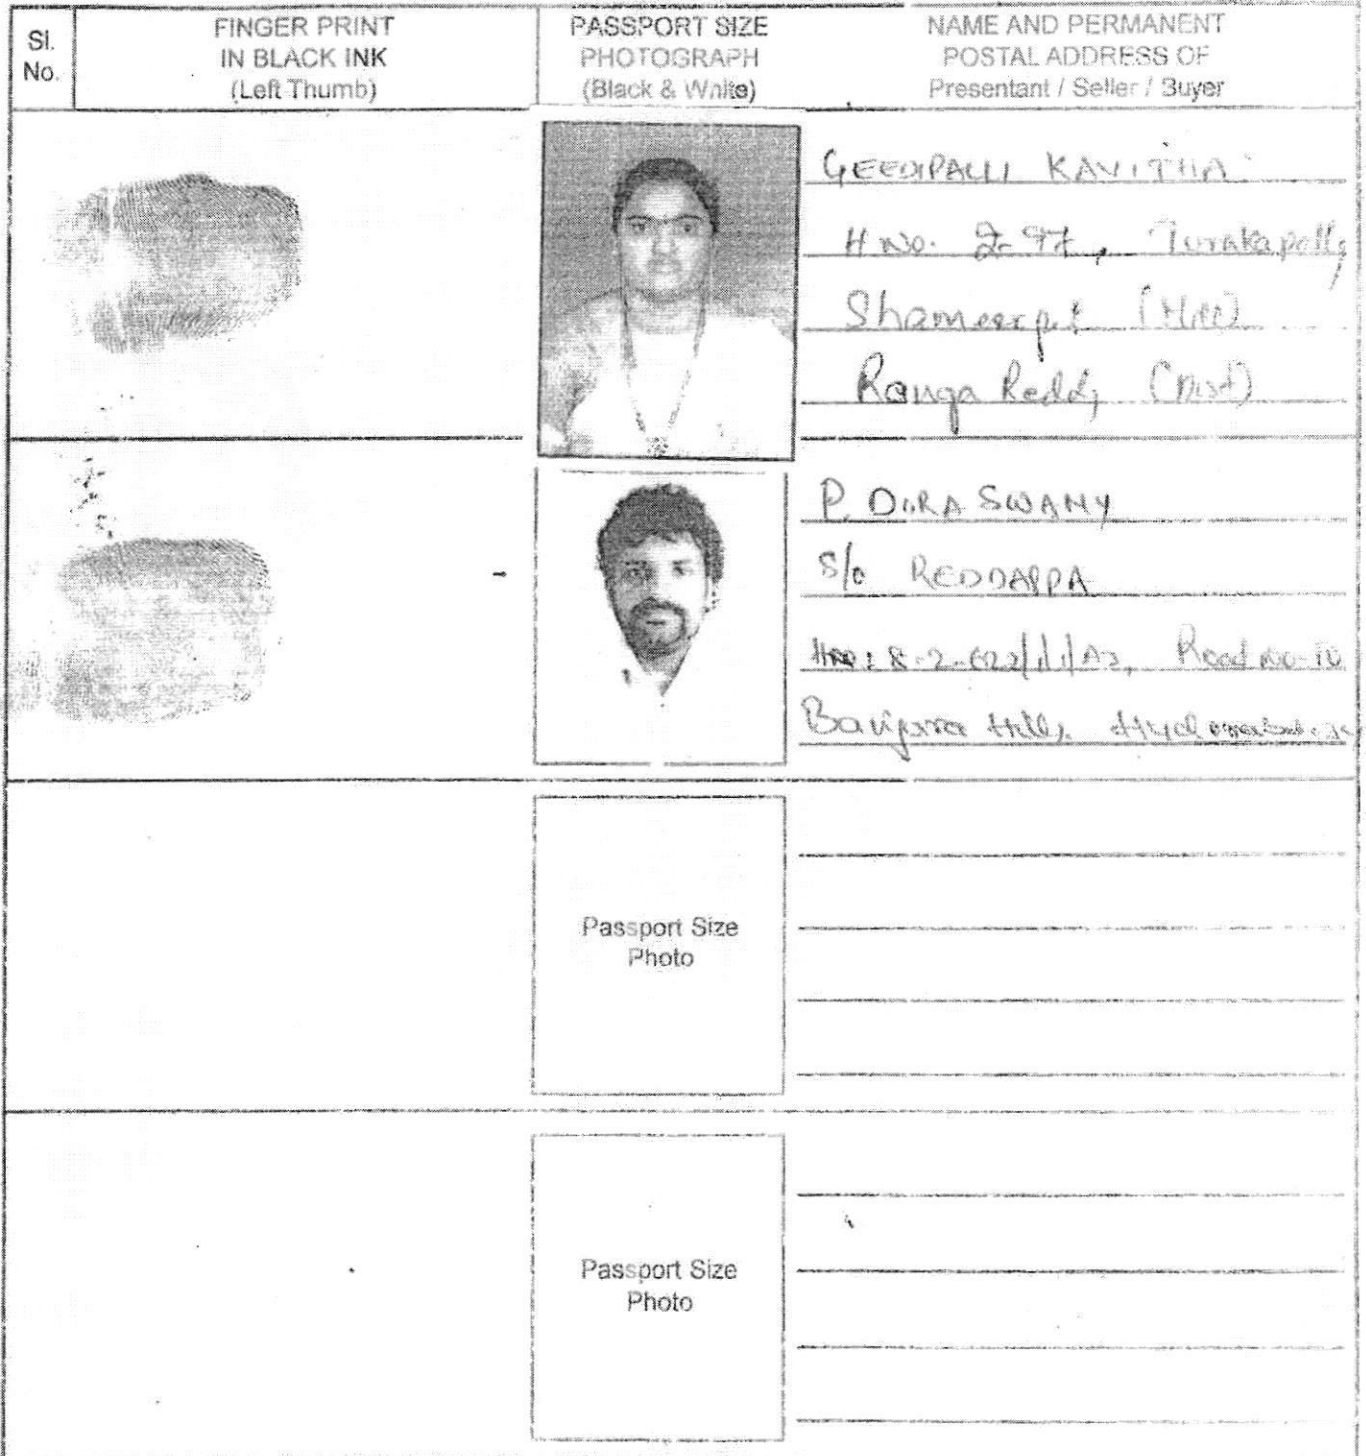 Sl.
No.
FINGER PRINT
IN BLACK INK
(Left Thumb)
PASSPORT SIZE
PHOTOGRAPH
(Black & White)
NAME AND PERMANENT
POSTAL ADDRESS OF
Presentant / Seller / Buyer
GEEDIPALLI KAVITHA
H No. 2-97, Turakapally
Shameerpet (Mdl)
Ranga Reddy (Dist)
P. DORA SWAMY
S/o REDDAPPA
8-2-622/1/1/A2, Road no-10
Banjara Hills, Hyderabad
Passport Size
Photo
Passport Size
Photo